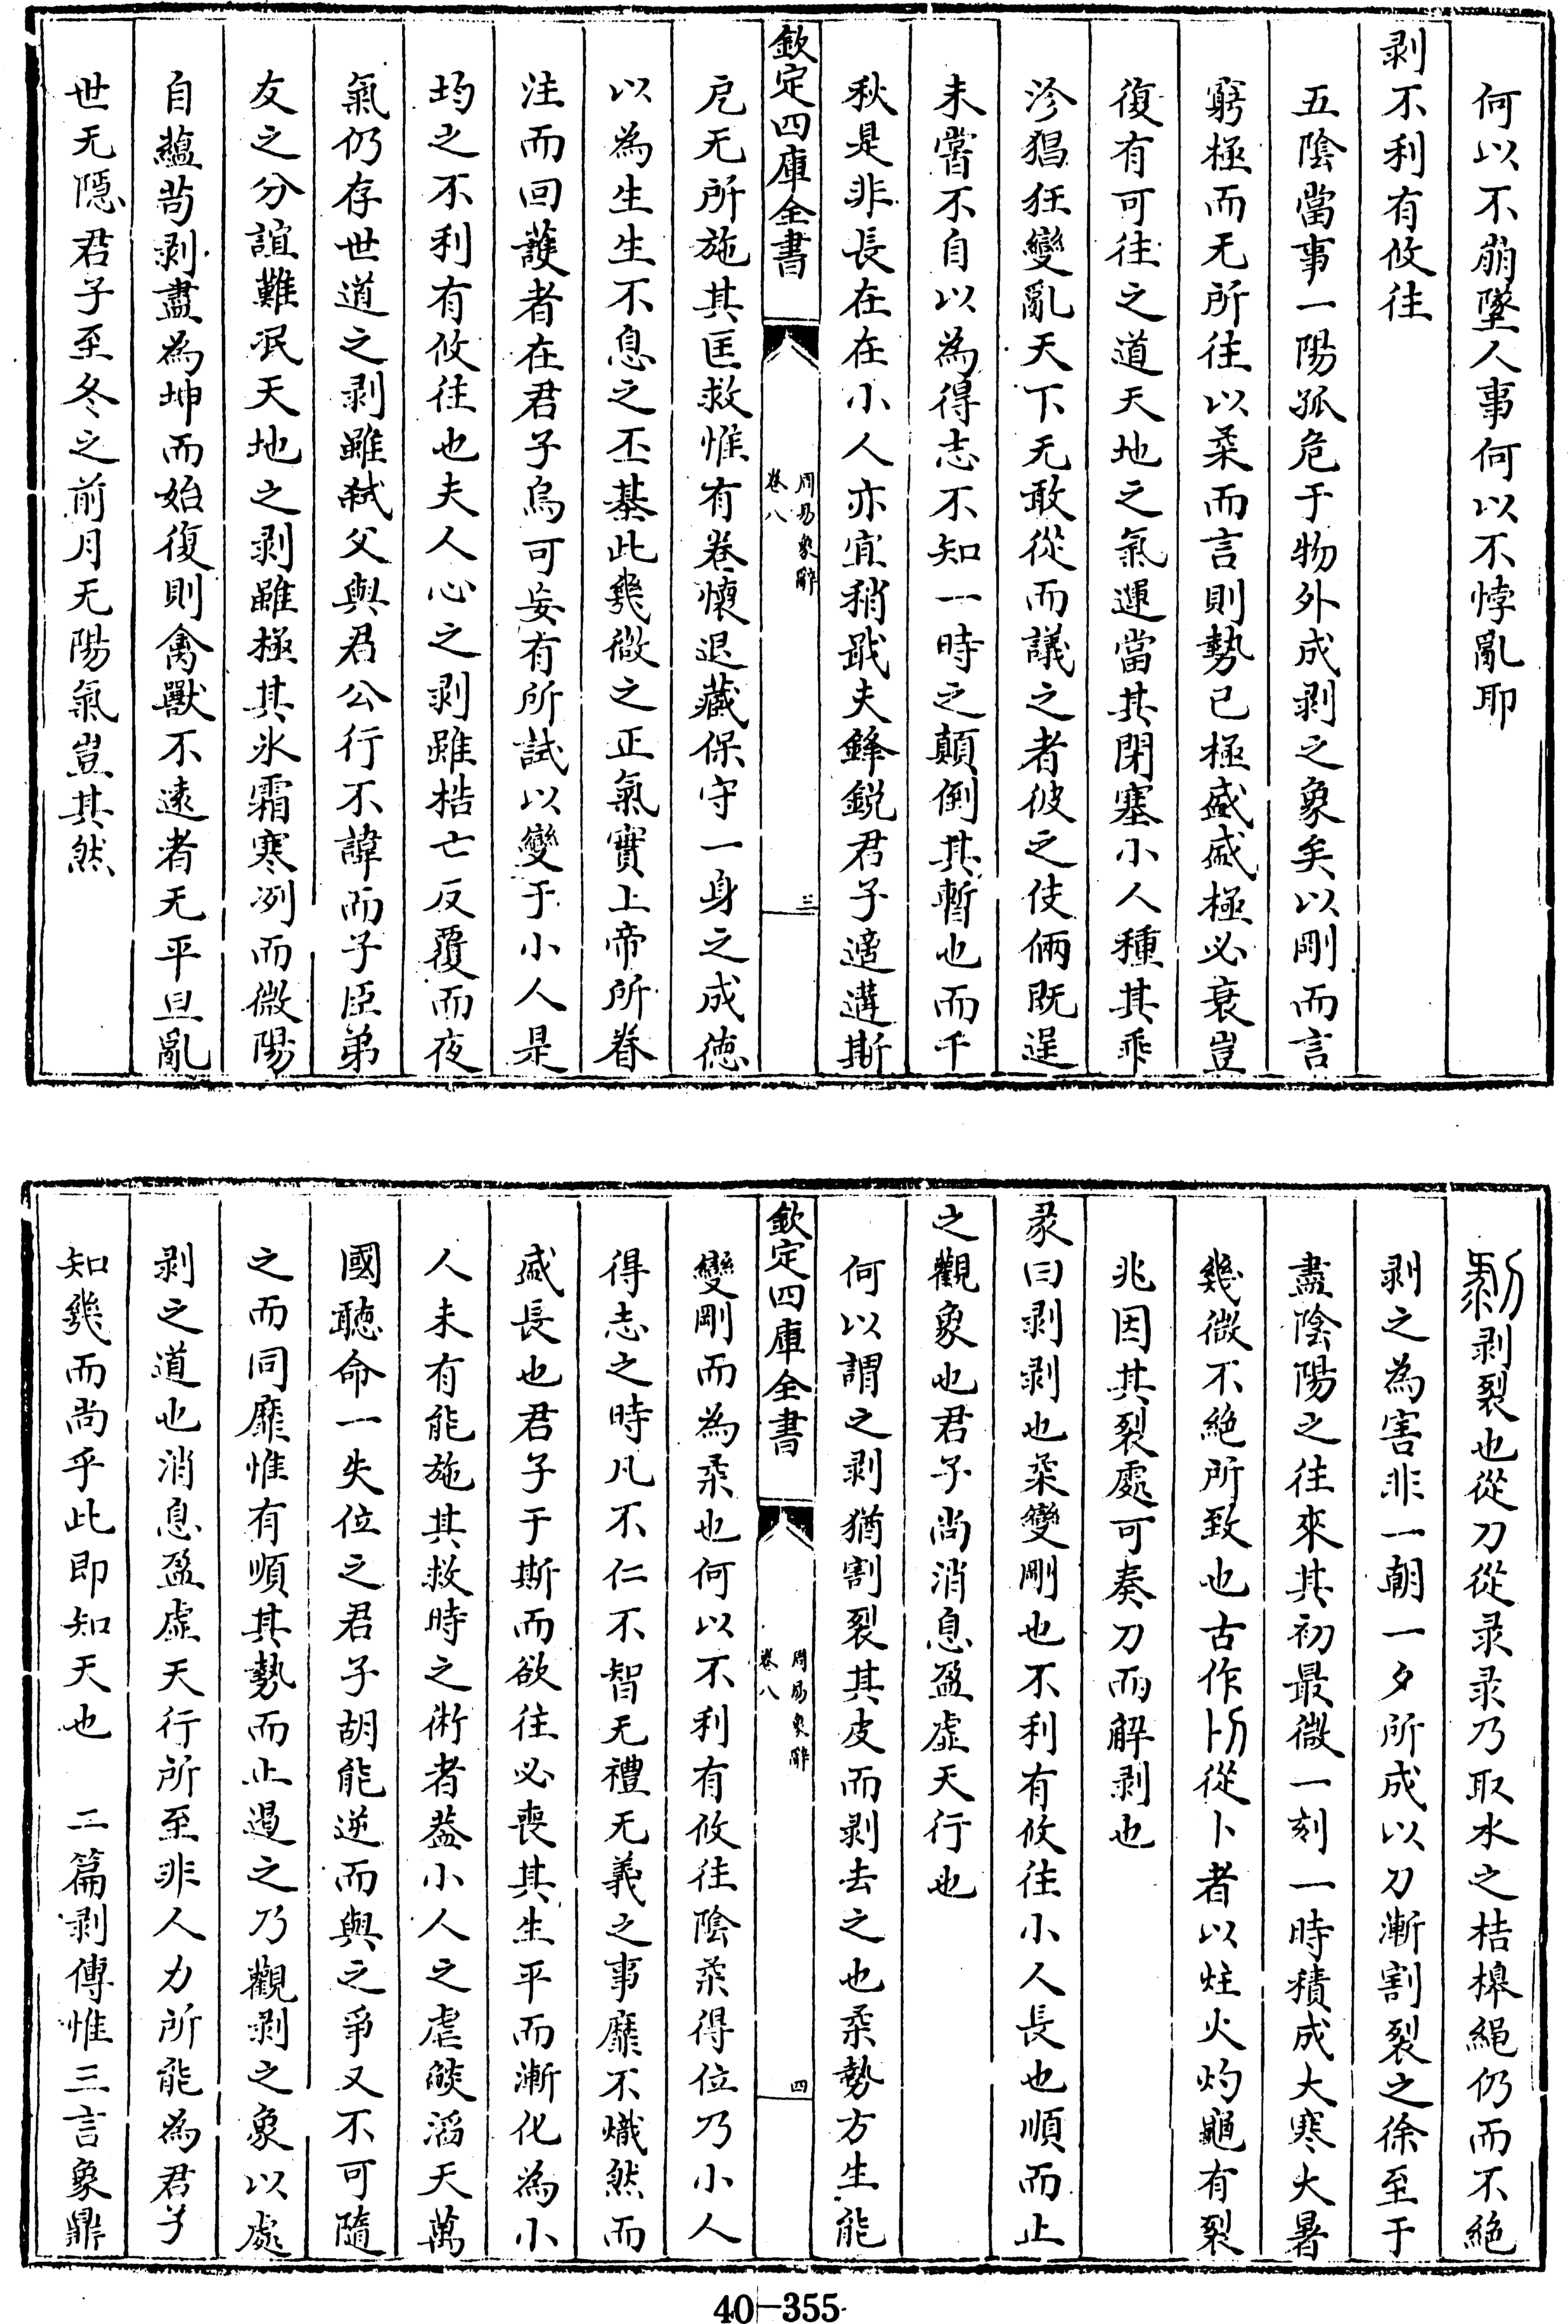 何以不崩墜人事何以不悖亂耶
剥不利有攸往
五陰當事一陽孤危于物外成剥之象矣以剛而言
窮極而无所往以柔而言則勢已極盛盛極必衰豈
復有可往之道天地之氣運當其閉塞小人種其乖
沴猖狂變亂天下无敢從而議之者彼之伎倆既逞
未嘗不自以為得志不知一時之顛倒其暫也而千
秋是非長在在小人亦宜稍戢夫鋒鋭君子適遘斯
欽定四庫全書
周易象辭
卷八
三
戹无所施其匡救惟有卷懷退藏保守一身之成徳
以為生生不息之丕基此幾微之正氣實上帝所眷
注而回護者在君子烏可妄有所試以變于小人是
均之不利有攸往也夫人心之剥雖梏亡反覆而夜
氣仍存世道之剥雖弑父與君公行不諱而子臣弟
友之分誼難泯天地之剥雖極其氷霜寒冽而微陽
自藴茍剥盡為坤而始復則禽獸不逺者无平旦亂
世无隠君子至冬之前月无陽氣豈其然
剥裂也從刀從录录乃取水之桔橰繩仍而不絶
剥之為害非一朝一夕所成以刀漸割裂之徐至于
盡陰陽之往來其初最微一刻一時積成大寒大暑
幾微不絶所致也古作𠛒從卜者以炷火灼龜有裂
兆因其裂處可奏刀而解剥也
彖曰剥剥也柔變剛也不利有攸往小人長也順而止
之觀象也君子尚消息盈虚天行也
何以謂之剥猶割裂其皮而剥去之也柔勢方生能
欽定四庫全書
周易象辭
卷八
四
變剛而為柔也何以不利有攸往陰柔得位乃小人
得志之時凡不仁不智无禮无義之事靡不熾然而
盛長也君子于斯而欲往必喪其生平而漸化為小
人未有能施其救時之術者葢小人之虐燄滔天萬
國聽命一失位之君子胡能逆而與之爭又不可隨
之而同靡惟有順其勢而止遏之乃觀剥之象以處
剥之道也消息盈虚天行所至非人力所能為君子
知幾而尚乎此即知天也 二篇剥傳惟三言象鼎
40-355